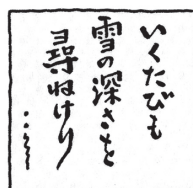 いくたびも
雪の深さを
尋ねけり